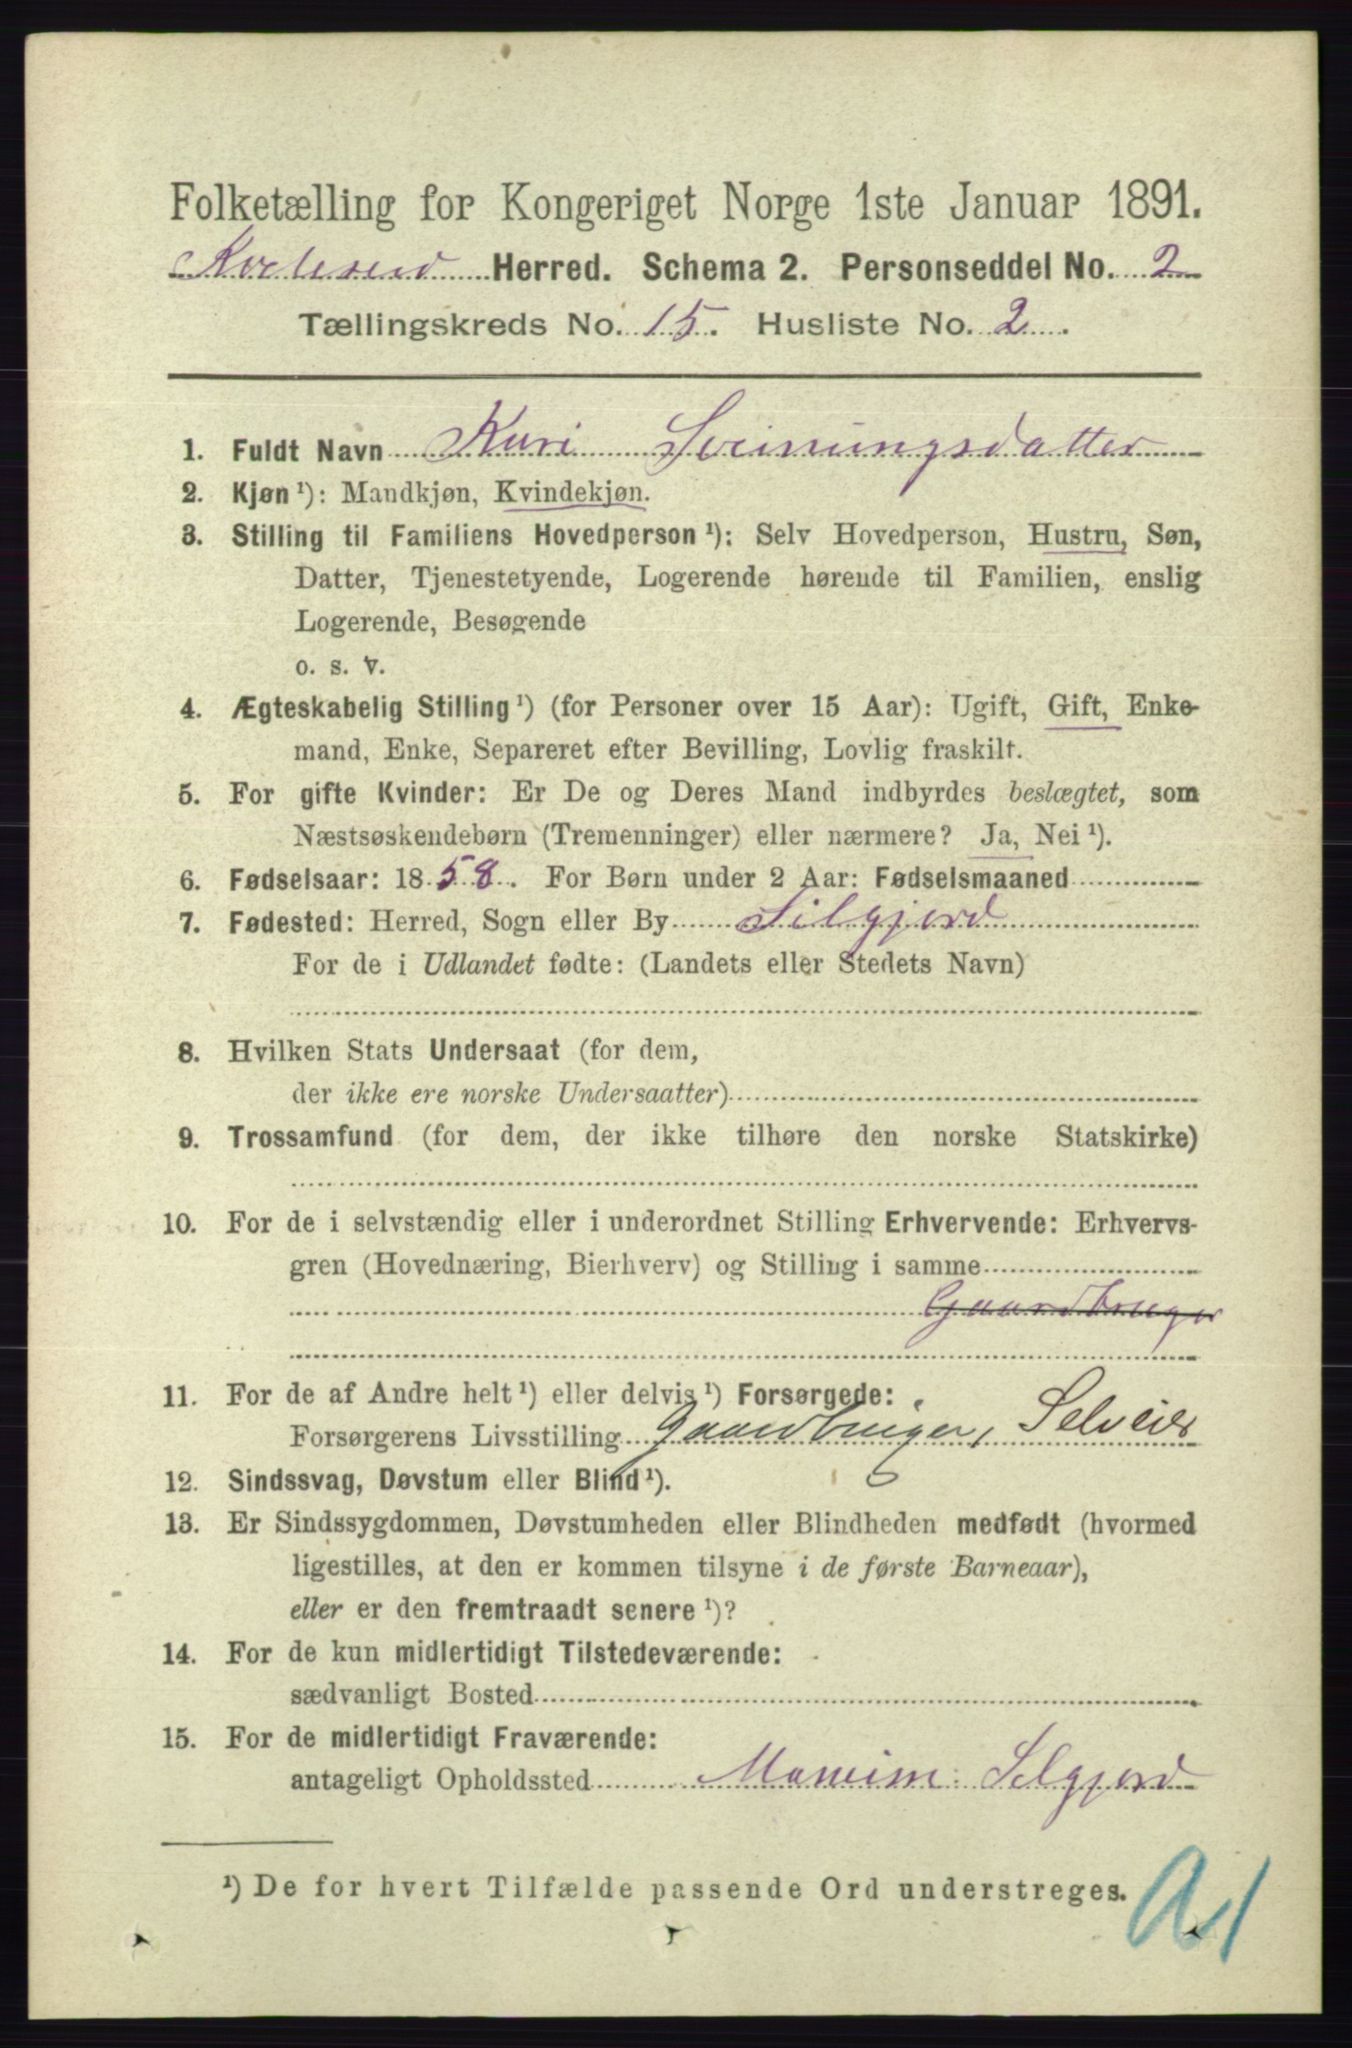 Folketælling for Kongeriget Norge 1ste Januar 1891.
Kviteseid Herred. Schema 2. Personseddel No. 2
Tællingskreds No. 15. Husliste No. 2.
1. Fuldt Navn Kari Sveinungsdatter
2. Kjøn ¹): Mandkjøn, Kvindekjøn.
3. Stilling til Familiens Hovedperson ¹): Selv Hovedperson, Hustru, Søn,
Datter, Tjenestetyende, Logerende hørende til Familien, enslig
Logerende, Besøgende
o. s. v.
4. Ægteskabelig Stilling ¹) (for Personer over 15 Aar): Ugift, Gift, Enke-
mand, Enke, Separeret efter Bevilling, Lovlig fraskilt.
5. For gifte Kvinder: Er De og Deres Mand indbyrdes beslægtet, som
Næstsøskendebørn (Tremenninger) eller nærmere? Ja, Nei ¹).
6. Fødselsaar: 1858. For Børn under 2 Aar: Fødselsmaaned
7. Fødested: Herred, Sogn eller By Silgjord
For de i Udlandet fødte: (Landets eller Stedets Navn)
8. Hvilken Stats Undersaat (for dem,
der ikke ere norske Undersaatter)
9. Trossamfund (for dem, der ikke tilhøre den norske Statskirke)
10. For de i selvstændig eller i underordnet Stilling Erhvervende: Erhvervs-
gren (Hovednæring, Bierhverv) og Stilling i samme
Gaardbruger
11. For de af Andre helt ¹) eller delvis ¹) Forsørgede:
Forsørgerens Livsstilling Gaardbruger, Selveier
12. Sindssvag, Døvstum eller Blind ¹).
13. Er Sindssygdommen, Døvstumheden eller Blindheden medfødt (hvormed
ligestilles, at den er kommen tilsyne i de første Barneaar),
eller er den fremtraadt senere ¹)?
14. For de kun midlertidigt Tilstedeværende:
sædvanligt Bosted
15. For de midlertidigt Fraværende:
antageligt Opholdssted Selgjord
¹) De for hvert Tilfælde passende Ord understreges.